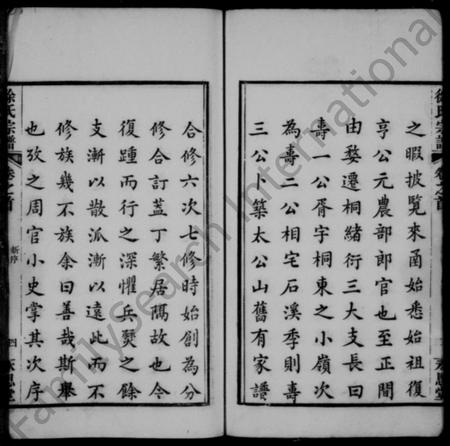 徐氏宗譜
卷之首
之暇披覽來函始悉始祖復
亨公元農部郎官也至正間
由婺遷桐緒行三大支長曰
壽一公胥宇桐東之小嶺次
為壽二公相宅石溪季則壽
三公卜築太公山舊有家譜
合修六次七修時始創為分
修合訂蓋丁繁居隔故也今
復踵而行之深懼兵燹之餘
支漸以散派漸以遠此而不
修族幾不族余曰善哉斯舉
也攷之周官小史掌其次序
徐氏宗譜
卷之首
新序
四
FamilySearch International